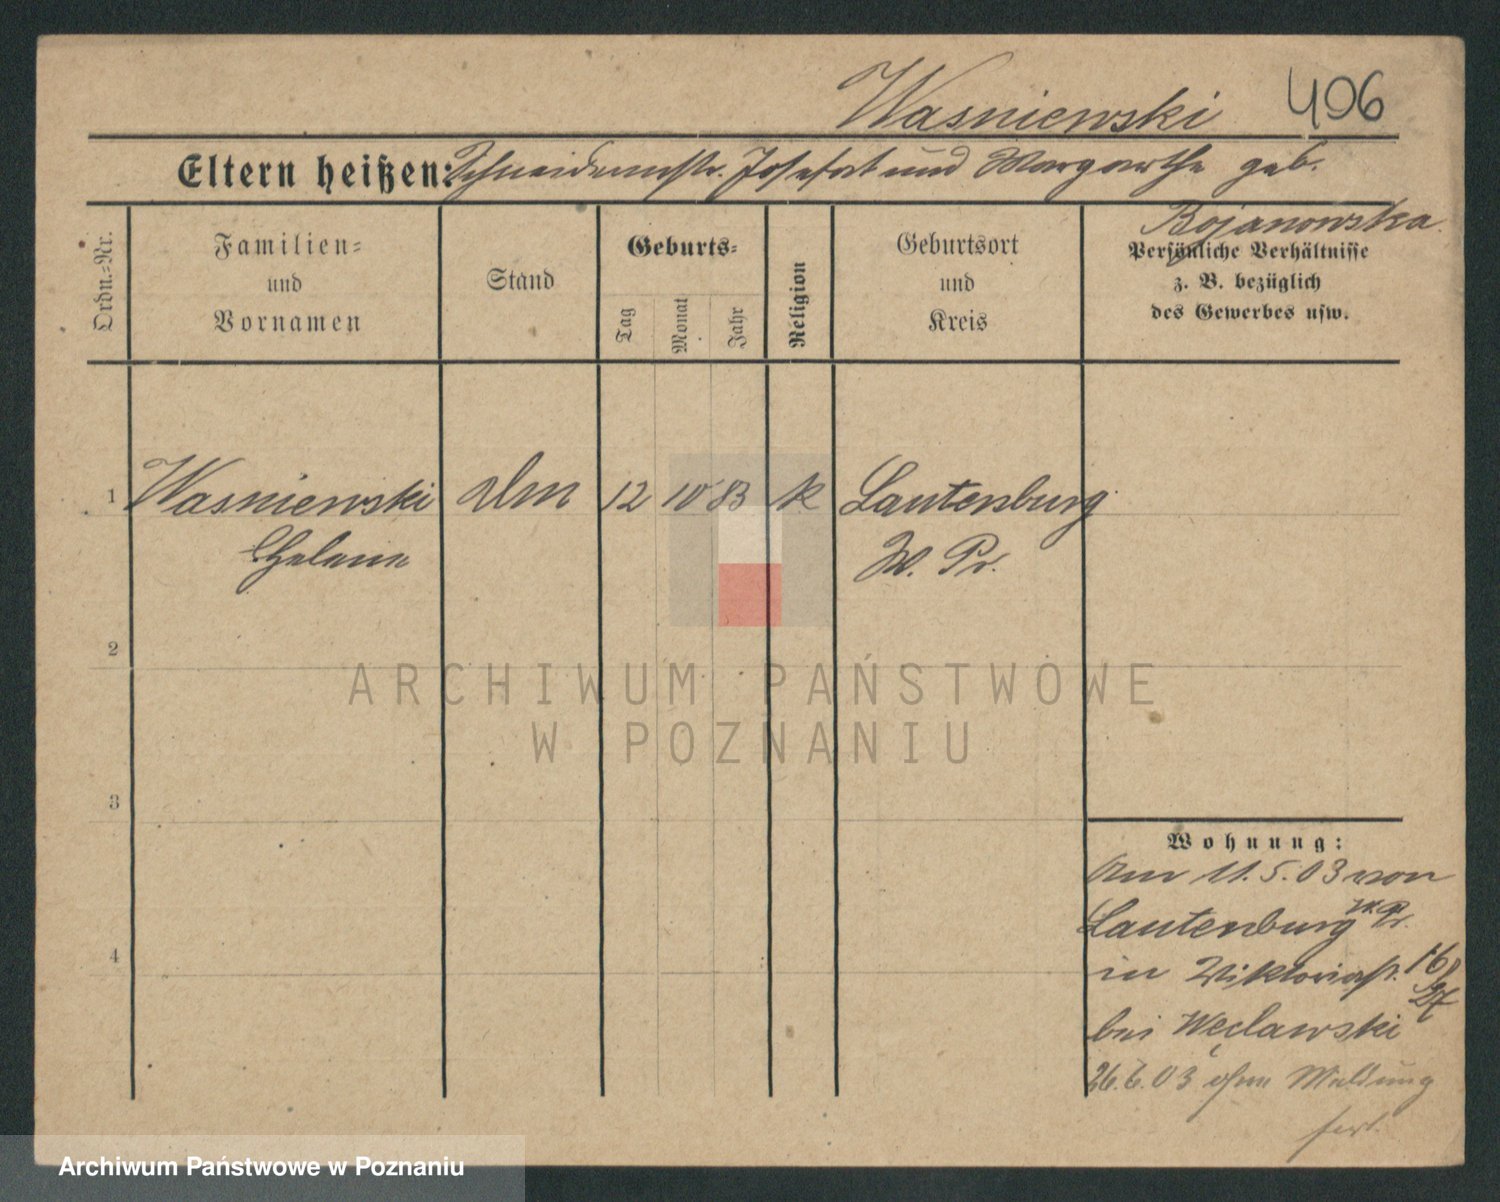 Wasniewski 406
Eltern heißen: Schneidermstr. Josefat und Margarethe geb.
Bojanowska
Ordn.-Nr.
Familien-
und
Vornamen
Stand
Geburts-
Tag
Monat
Jahr
Religion
Geburtsort
und
Kreis
Persönliche Verhältnisse
z. B. bezüglich
des Gewerbes usw.
1 Wasniewski 12 10 83 k Lautenburg
Helene W. Pr.
2
3
4
ARCHIWUM PAŃSTWOWE
W POZNANIU
Wohnung:
Am 11.5.03 von
Lautenburg W. Pr.
in Viktoriastr. 16/27
bei Węclawski
26.6.03 ohne Meldung
fort.
Archiwum Państwowe w Poznaniu